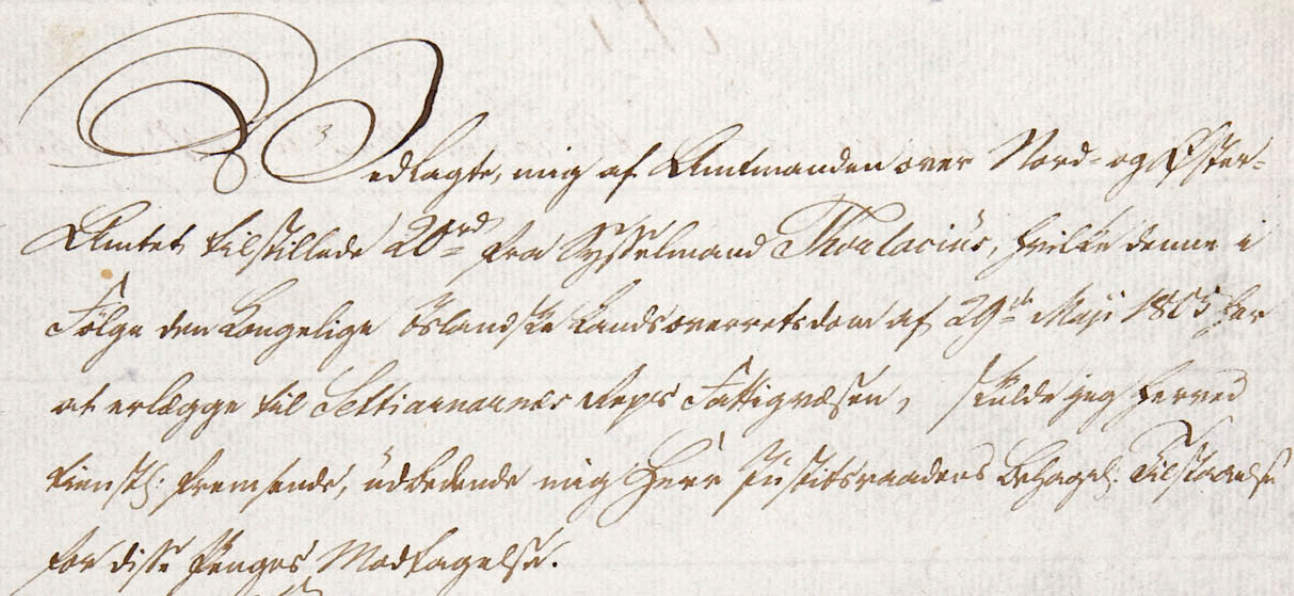 Vedlagte, mig af Amtmanden over Nord- og Øster-
Amtet tilstillede 20rd fra Sysselmand Thorlacius, hvilke denne i
Følge den Kongelige Islandske Landsoverretsdom af 29de Maji 1805 har
at erlægge til Seltiarnarnes Reps Fattigvæsen, skulde jeg herved
tienstl: fremsende, udbedende mig Herr Justitsraadens behagel: Tilstaaelse
for disse Penges Modtagelse.